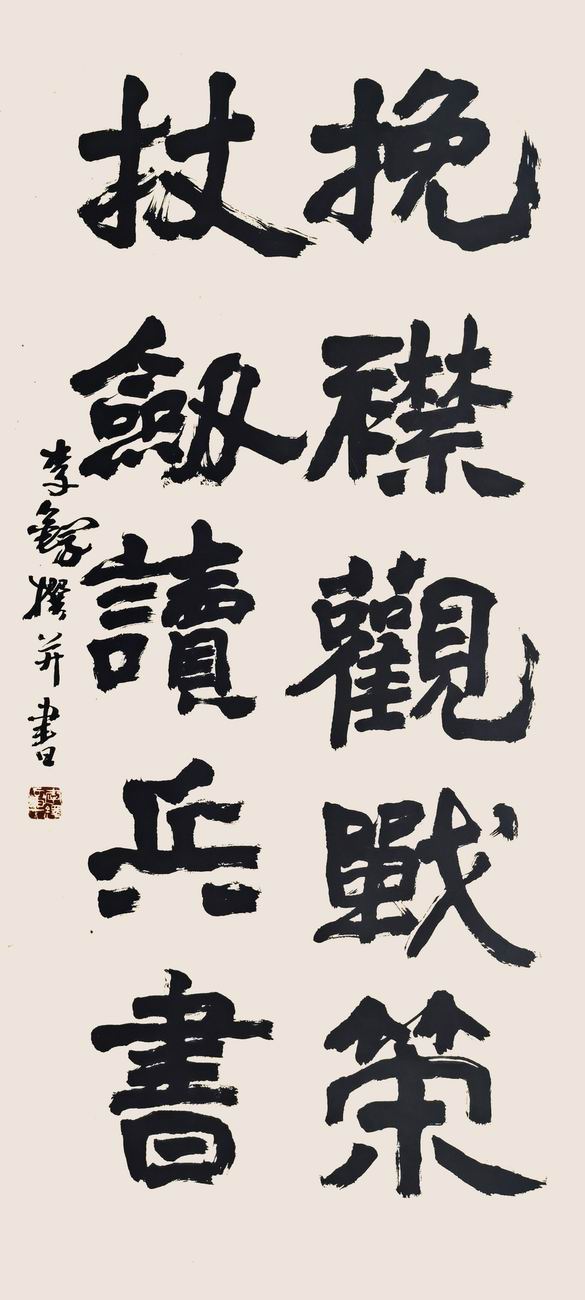 挽襟觀戰策
杖劔讀兵書
李鐸撰并書